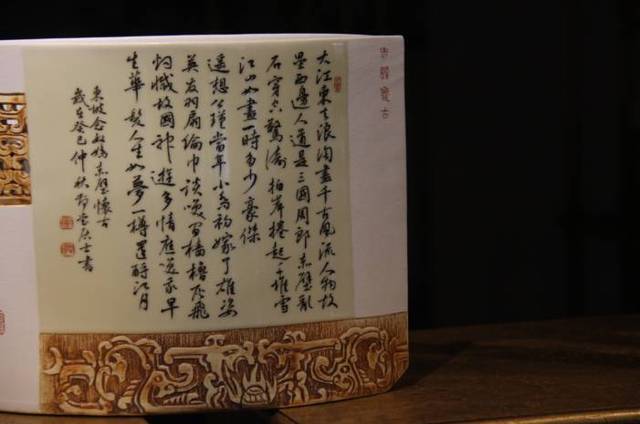 赤壁懷古
大江東去浪淘盡千古風流人物故
壘西邊人道是三國周郎赤壁亂
石穿空驚濤拍岸捲起千堆雪
江山如畫一時多少豪傑
遙想公瑾當年小喬初嫁了雄姿
英發羽扇綸巾談笑間檣櫓灰飛
煙滅故國神遊多情應笑我早
生華髮人生如夢一樽還酹江月
東坡念奴嬌赤壁懷古
歲在癸巳仲秋居士書